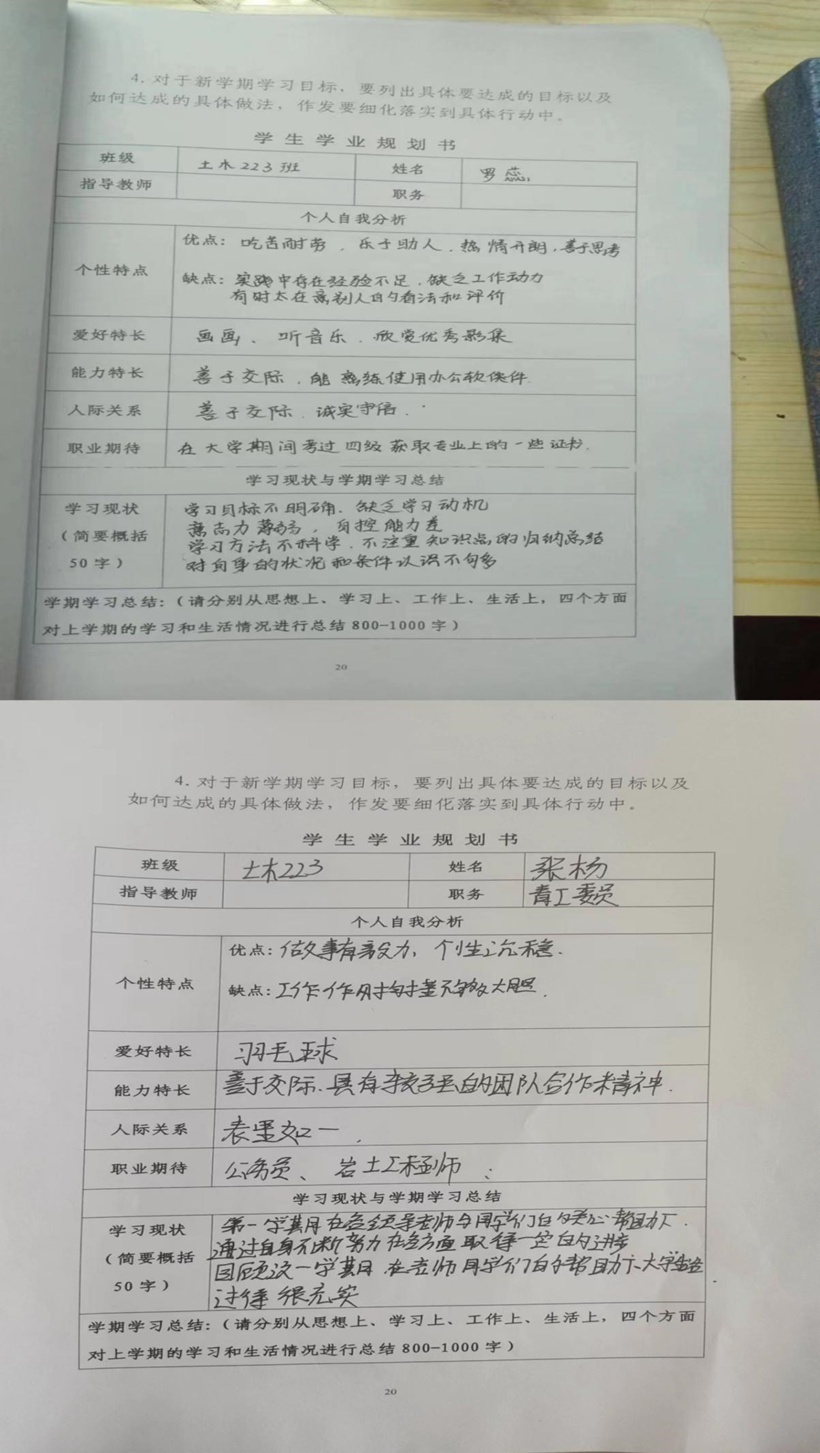 4. 对于新学期学习目标，要列出具体要达成的目标以及
如何达成的具体做法，作发要细化落实到具体行动中。
学生学业规划书
班级 土木223班 姓名 罗蕊
指导教师 职务
个人自我分析
个性特点
优点：吃苦耐劳，乐于助人，热情开朗，善于思考
缺点：实践中存在经验不足，缺乏工作动力
有时太在意别人的看法和评价
爱好特长 画画、听音乐、欣赏优秀影集
能力特长 善于交际，能熟练使用办公软件
人际关系 善于交际，诚实守信．
职业期待 在大学期间考过四级获取专业上的一些证书．
学习现状与学期学习总结
学习现状
（简要概括
50字）
学习目标不明确．缺乏学习动机
意志力薄弱，自控能力差
学习方法不科学，不注重知识点的归纳总结
对自身的状况和条件认识不够多
学期学习总结：（请分别从思想上、学习上、工作上、生活上，四个方面
对上学期的学习和生活情况进行总结800-1000字）
20
4. 对于新学期学习目标，要列出具体要达成的目标以及
如何达成的具体做法，作发要细化落实到具体行动中。
学生学业规划书
班级 土木223 姓名 张杨
指导教师 职务 青工委员
个人自我分析
个性特点
优点：做事有毅力，个性沉稳．
缺点：工作作风拘谨不够大胆．
爱好特长 羽毛球
能力特长 善于交际、具有较强的团队合作精神．
人际关系 表里如一．
职业期待 公务员、岩土工程师
学习现状与学期学习总结
学习现状
（简要概括
50字）
第一学期在各领导老师与同学们的关心帮助下．
通过自身不断努力在各方面取得一定的进步
回顾这一学期，在老师同学们的帮助下大学生活
过得很充实
学期学习总结：（请分别从思想上、学习上、工作上、生活上，四个方面
对上学期的学习和生活情况进行总结800-1000字）
20